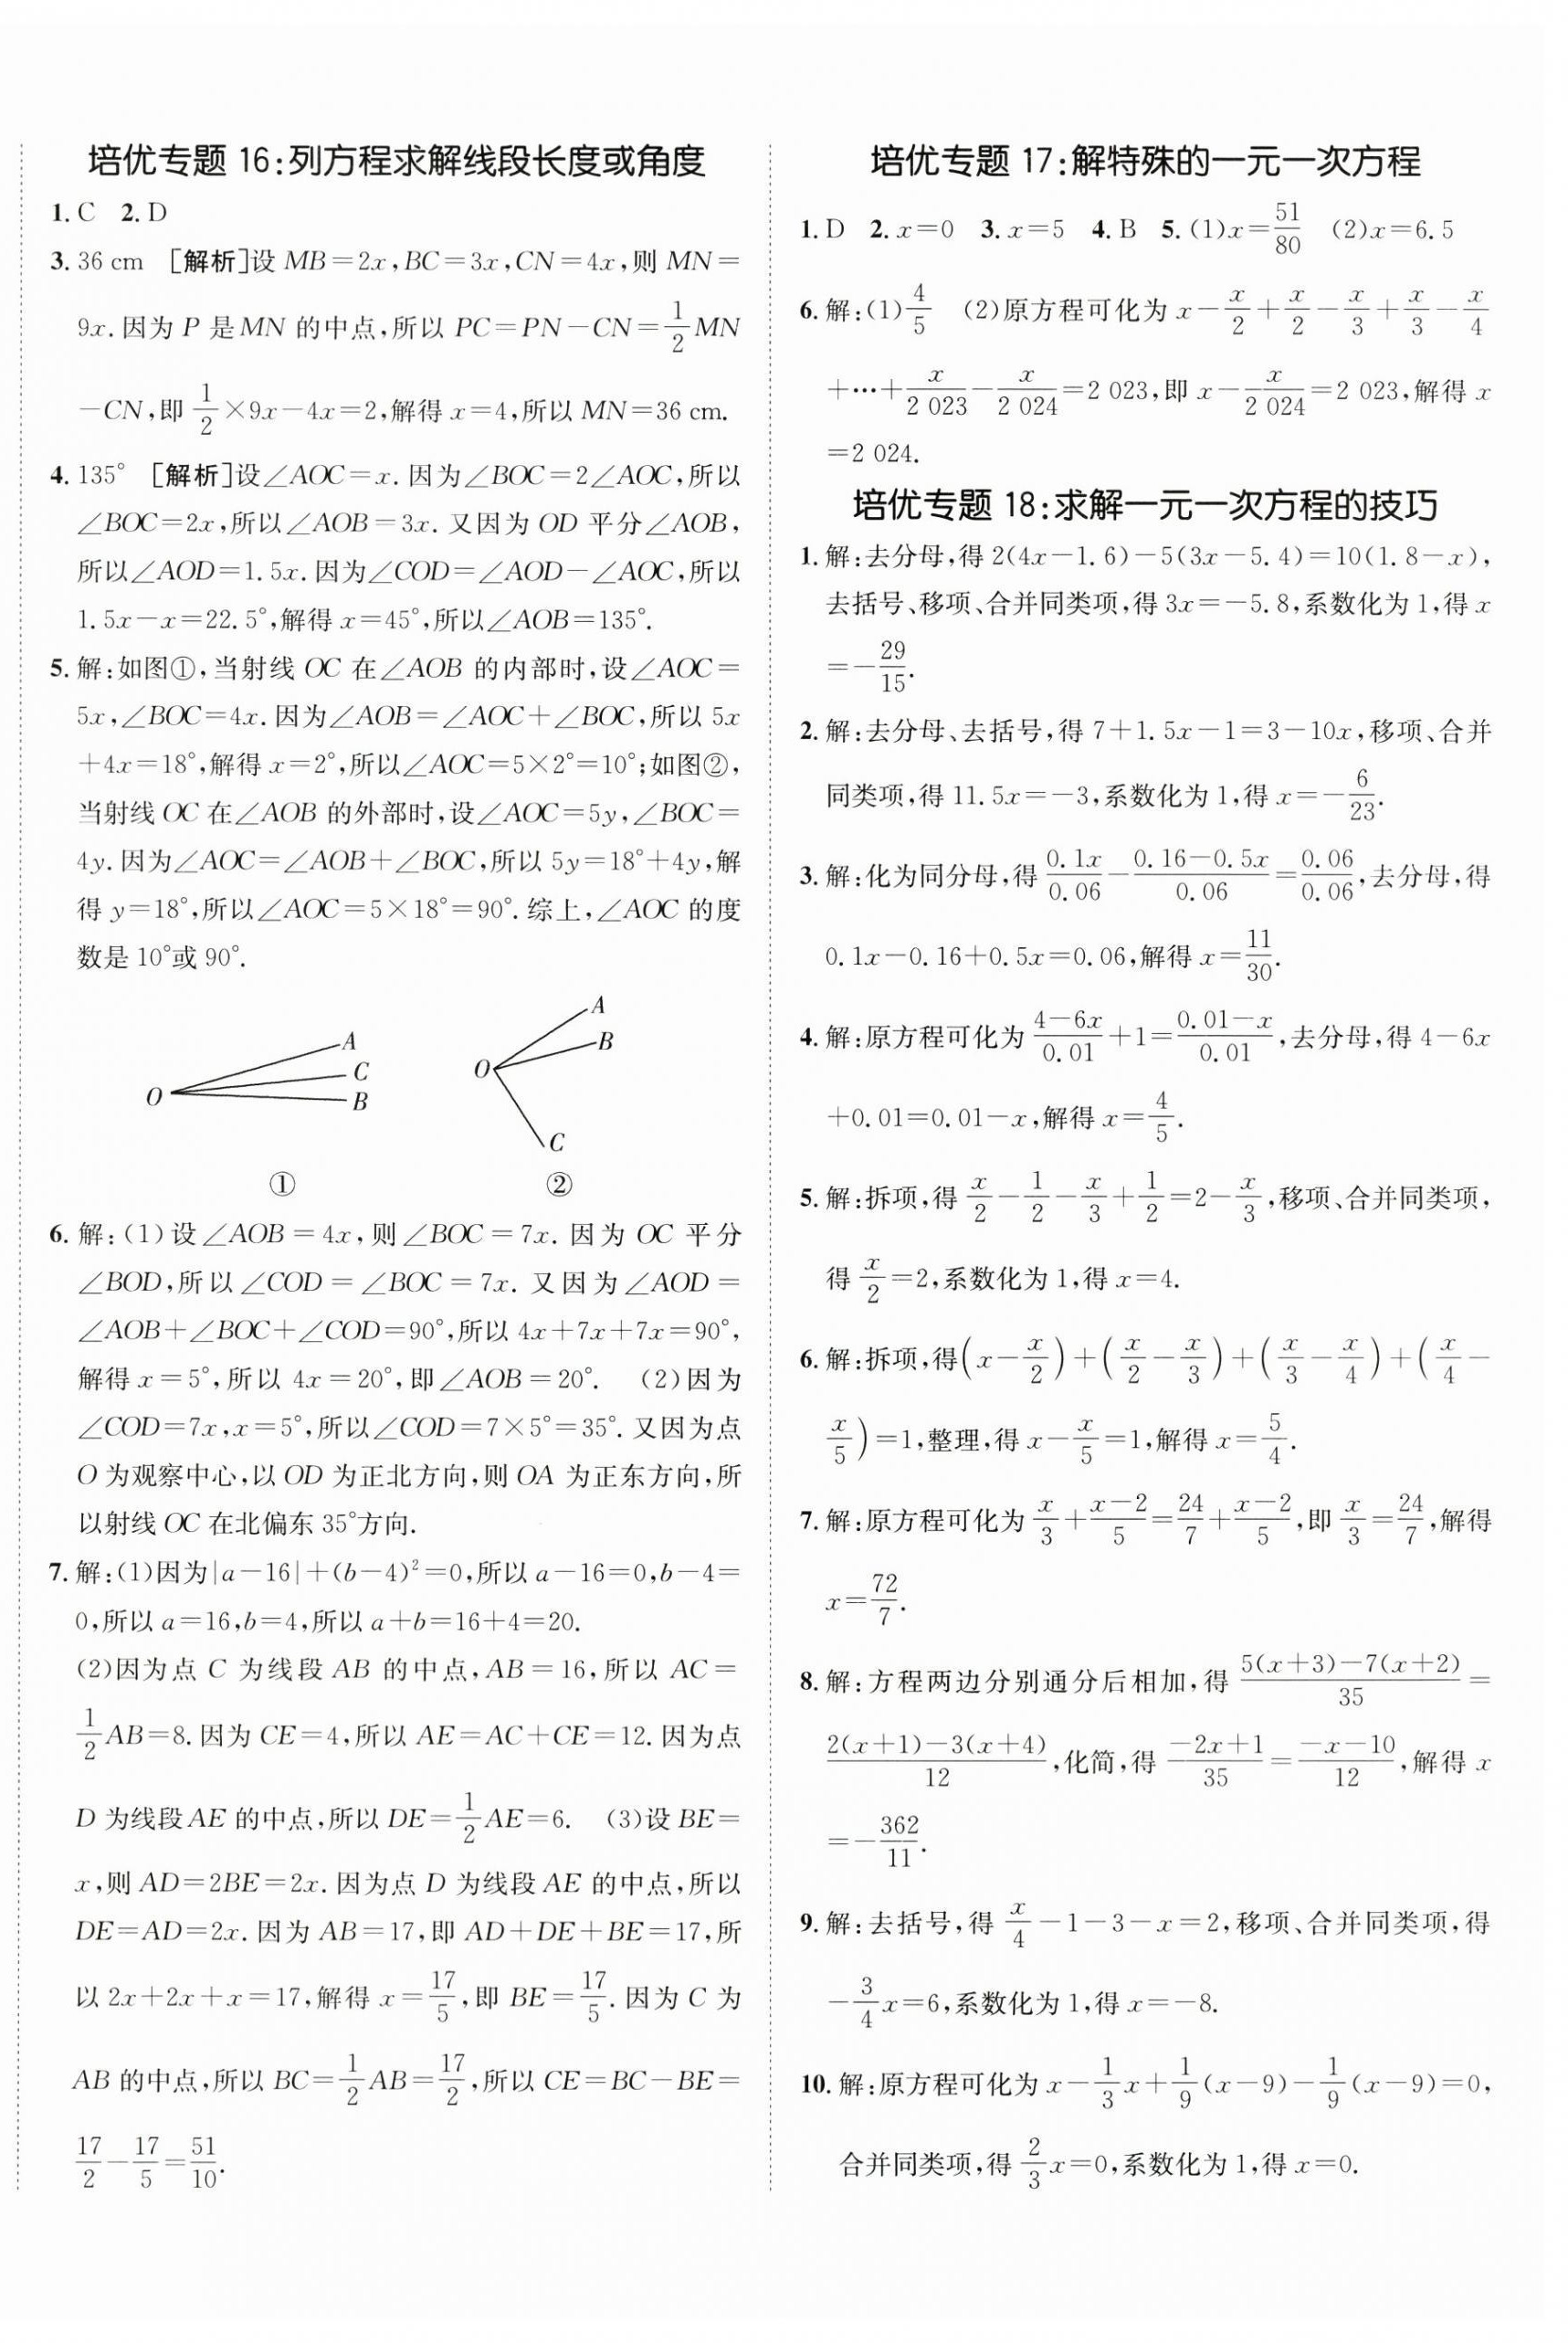 培优专题 16:列方程求解线段长度或角度
1. C  2. D
3. 36 cm [解析]设 MB=2x,BC=3x,CN=4x,则 MN=
9x.因为 P 是MN 的中点,所以 PC=PN-CN=1/2 MN
-CN,即 1/2×9x-4x=2,解得 x=4,所以 MN=36 cm.
4. 135° [解析]设∠AOC=x.因为∠BOC=2∠AOC,所以
∠BOC=2x,所以∠AOB=3x.又因为 OD 平分∠AOB,
所以∠AOD=1.5x.因为∠COD=∠AOD-∠AOC,所以
1.5x-x=22.5°,解得 x=45°,所以∠AOB=135°.
5. 解:如图①,当射线 OC 在∠AOB 的内部时,设∠AOC=
5x,∠BOC=4x.因为∠AOB=∠AOC+∠BOC,所以 5x
+4x=18°,解得 x=2°,所以∠AOC=5×2°=10°;如图②,
当射线 OC 在∠AOB 的外部时,设∠AOC=5y,∠BOC=
4y.因为∠AOC=∠AOB+∠BOC,所以 5y=18°+4y,解
得 y=18°,所以∠AOC=5×18°=90°.综上,∠AOC 的度
数是 10°或 90°.
O A C B
①
O A B C
②
6. 解:(1)设∠AOB=4x,则∠BOC=7x.因为 OC 平分
∠BOD,所以∠COD=∠BOC=7x.又因为∠AOD=
∠AOB+∠BOC+∠COD=90°,所以 4x+7x+7x=90°,
解得 x=5°,所以 4x=20°,即∠AOB=20°. (2)因为
∠COD=7x,x=5°,所以∠COD=7×5°=35°.又因为点
O 为观察中心,以 OD 为正北方向,则 OA 为正东方向,所
以射线 OC 在北偏东 35°方向.
7. 解:(1)因为|a-16|+(b-4)²=0,所以 a-16=0,b-4=
0,所以 a=16,b=4,所以 a+b=16+4=20.
(2)因为点 C 为线段 AB 的中点,AB=16,所以 AC=
1/2 AB=8.因为 CE=4,所以 AE=AC+CE=12.因为点
D 为线段AE 的中点,所以 DE=1/2 AE=6. (3)设 BE=
x,则 AD=2BE=2x.因为点 D 为线段 AE 的中点,所以
DE=AD=2x.因为 AB=17,即 AD+DE+BE=17,所
以 2x+2x+x=17,解得 x=17/5,即 BE=17/5.因为 C 为
AB 的中点,所以 BC=1/2 AB=17/2,所以 CE=BC-BE=
17/2-17/5=51/10.
培优专题 17:解特殊的一元一次方程
1. D  2. x=0  3. x=5  4. B  5. (1)x=51/80 (2)x=6.5
6. 解:(1)4/5 (2)原方程可化为 x-x/2+x/2-x/3+x/3-x/4
+…+x/2 023-x/2 024=2 023,即 x-x/2 024=2 023,解得 x
=2 024.
培优专题 18:求解一元一次方程的技巧
1. 解:去分母,得 2(4x-1.6)-5(3x-5.4)=10(1.8-x),
去括号、移项、合并同类项,得 3x=-5.8,系数化为 1,得 x
=-29/15.
2. 解:去分母、去括号,得 7+1.5x-1=3-10x,移项、合并
同类项,得 11.5x=-3,系数化为 1,得 x=-6/23.
3. 解:化为同分母,得 0.1x/0.06-(0.16-0.5x)/0.06=0.06/0.06,去分母,得
0.1x-0.16+0.5x=0.06,解得 x=11/30.
4. 解:原方程可化为 (4-6x)/0.01+1=(0.01-x)/0.01,去分母,得 4-6x
+0.01=0.01-x,解得 x=4/5.
5. 解:拆项,得 x/2-1/2-x/3+1/2=2-x/3,移项、合并同类项,
得 x/2=2,系数化为 1,得 x=4.
6. 解:拆项,得(x-x/2)+(x/2-x/3)+(x/3-x/4)+(x/4-
x/5)=1,整理,得 x-x/5=1,解得 x=5/4.
7. 解:原方程可化为 x/3+(x-2)/5=24/7+(x-2)/5,即 x/3=24/7,解得
x=72/7.
8. 解:方程两边分别通分后相加,得 (5(x+3)-7(x+2))/35=
(2(x+1)-3(x+4))/12,化简,得 (-2x+1)/35=(-x-10)/12,解得 x
=-362/11.
9. 解:去括号,得 x/4-1-3-x=2,移项、合并同类项,得
-3/4 x=6,系数化为 1,得 x=-8.
10. 解:原方程可化为 x-1/3 x+1/9(x-9)-1/9(x-9)=0,
合并同类项,得 2/3 x=0,系数化为 1,得 x=0.